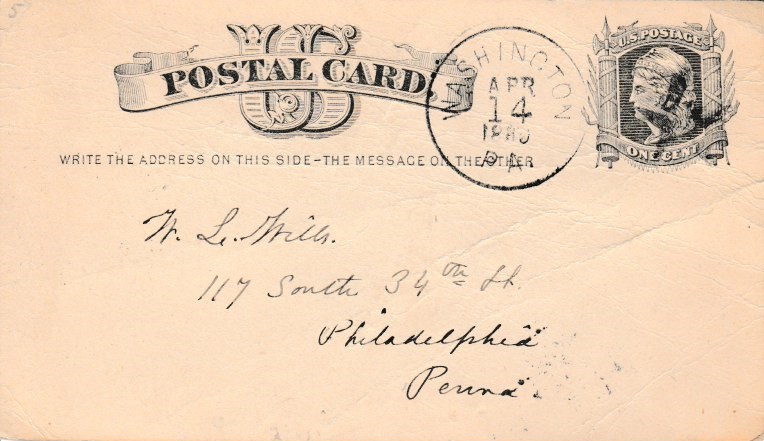 5
U.S. POSTAGE
US
POSTAL CARD.
WASHINGTON
APR
14
PA.
ONE CENT
WRITE THE ADDRESS ON THIS SIDE–THE MESSAGE ON THE OTHER
W. L. Wills.
117 South 34th St.
Philadelphia
Penna.